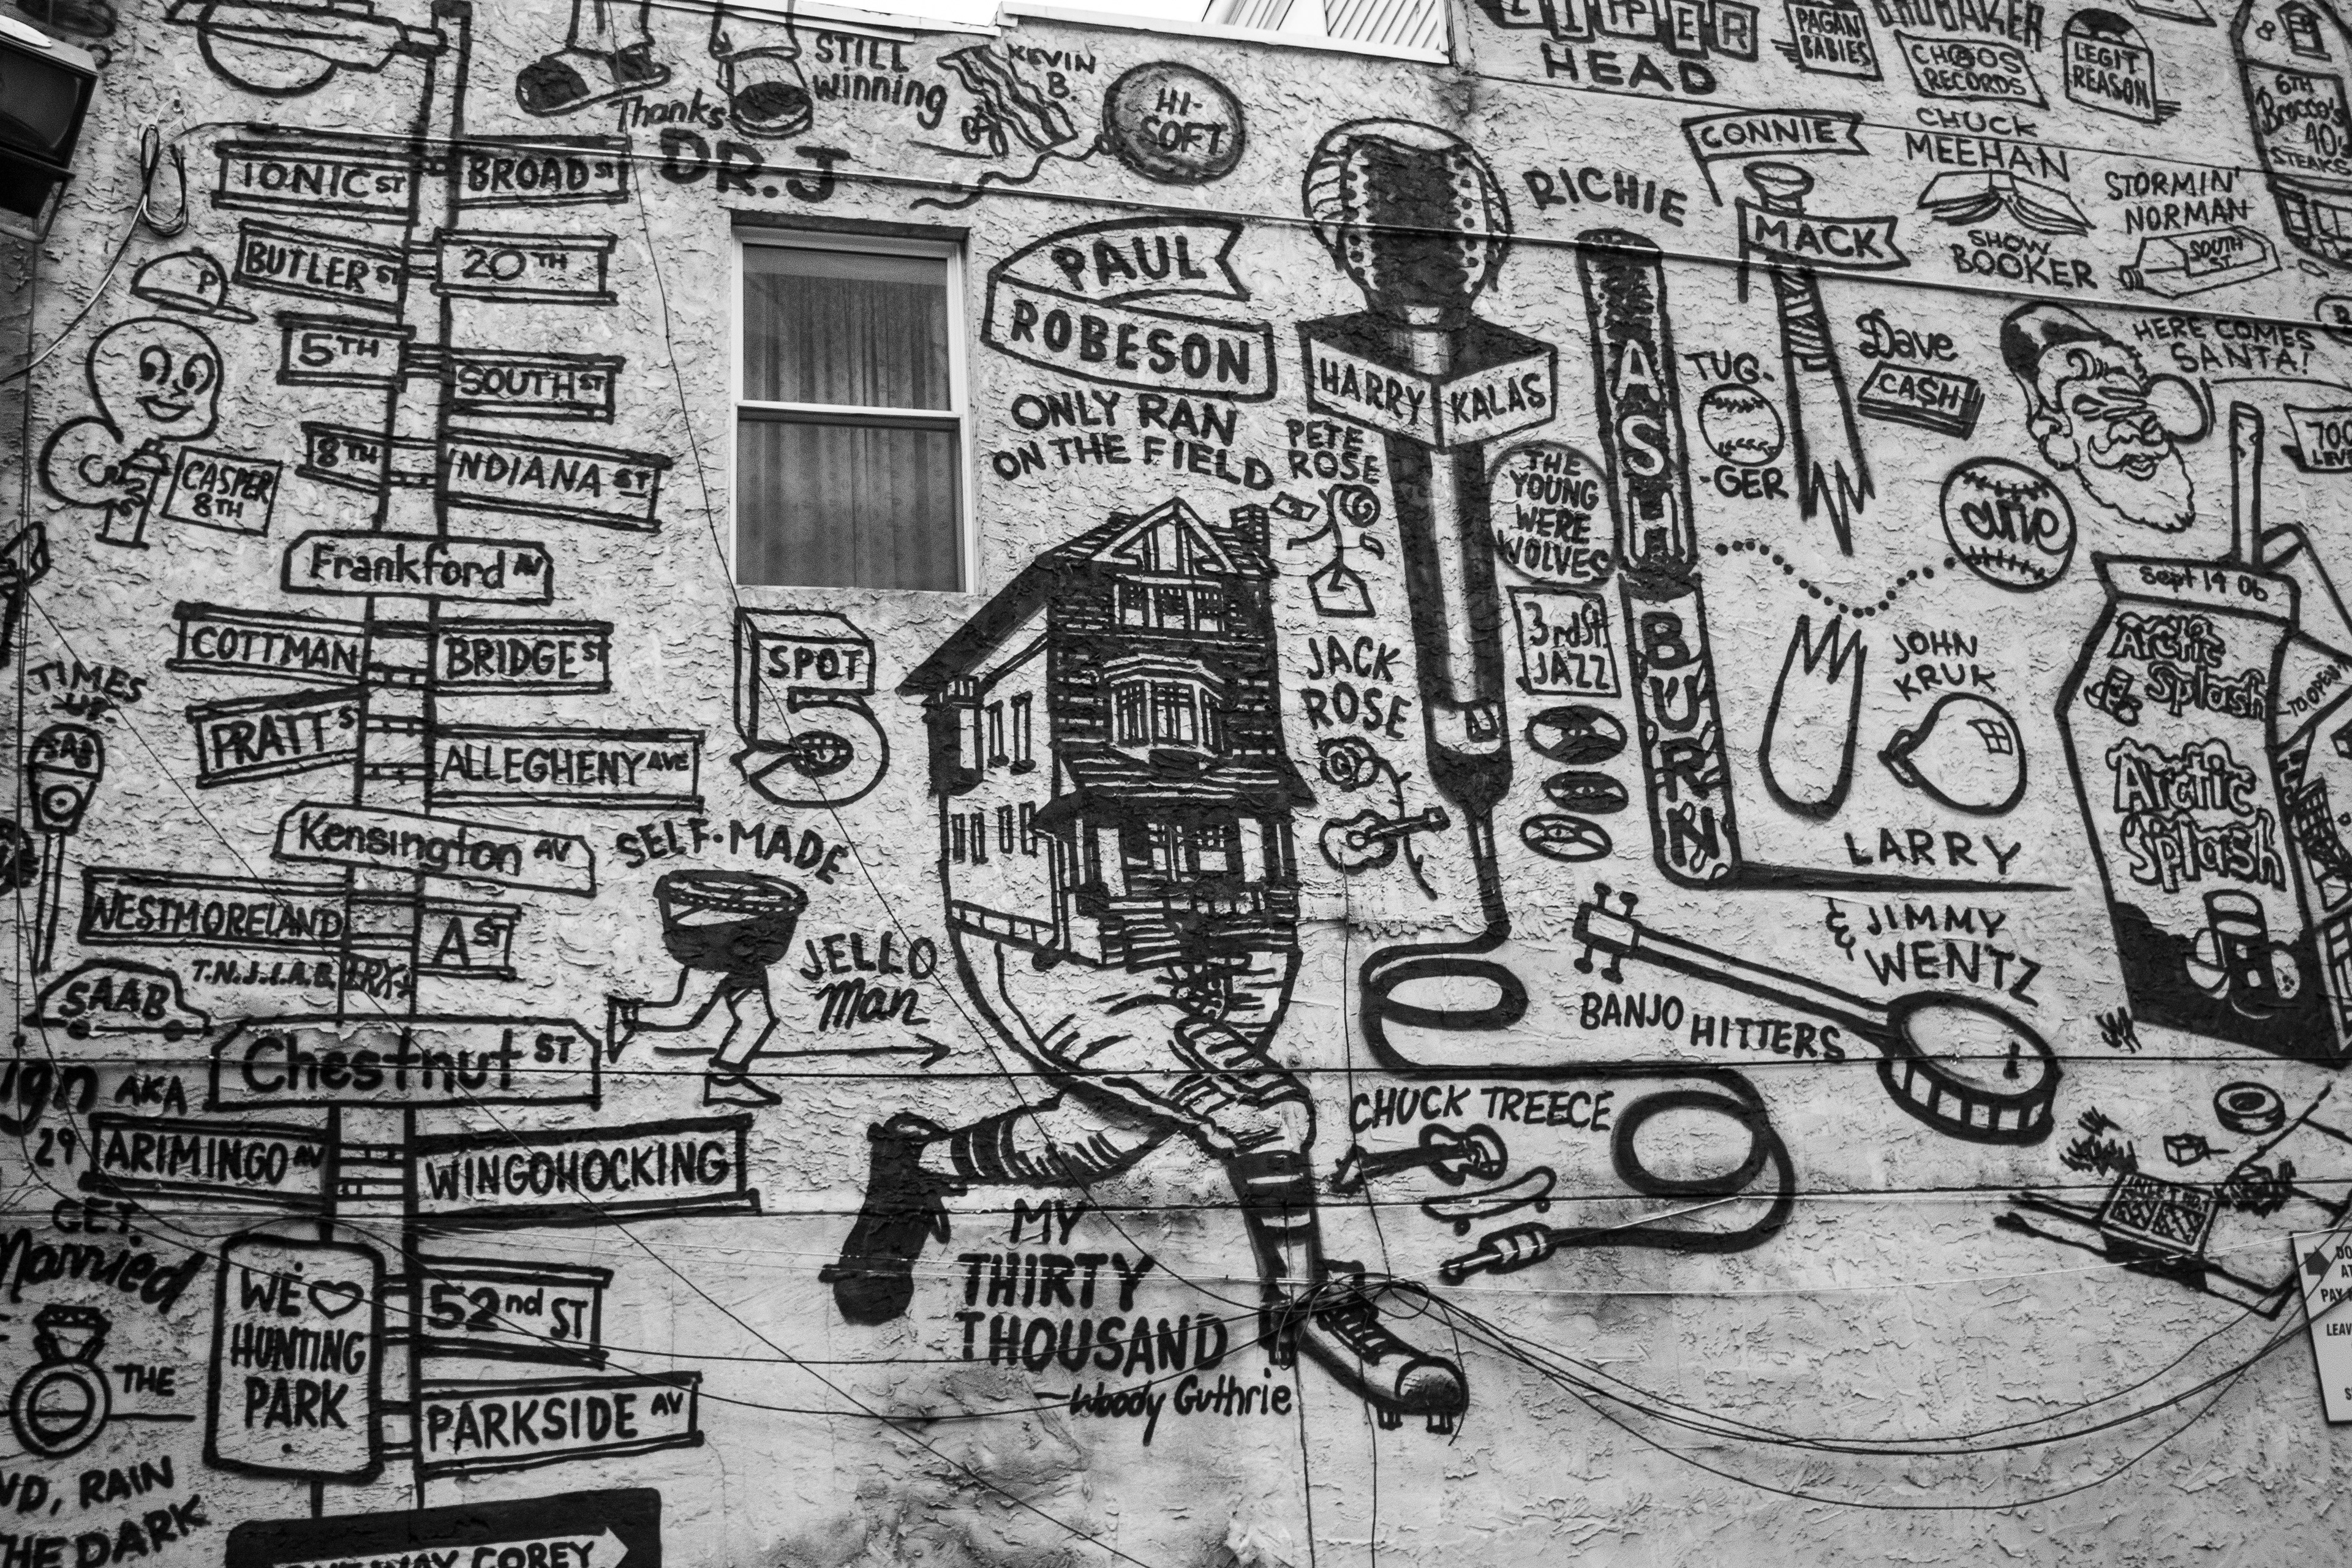 STILL
winning
Thanks
DR. J
KEVIN
B.
HI-
SOFT
HEAD
PAGAN
BABIES
BRUBAKER
CHAOS
RECORDS
LEGIT
REASON
6TH
Brocco's
40's
STEAKS
IONIC ST
BROAD ST
BUTLER ST
20TH
P
5TH
SOUTH ST
8TH
INDIANA ST
CASPER
8TH
Frankford AV
COTTMAN
BRIDGE ST
PRATT ST
ALLEGHENY AVE
Kensington AV
WESTMORELAND
A ST
T.N.J.L.A.B.
Chestnut ST
ARIMINGO AV
WINGOHOCKING
WE
HUNTING
PARK
52nd ST
PARKSIDE AV
COREY
TIMES
UP
SAAB
AKA
29
GET
Married
THE
RAIN
THE DARK
PAUL
ROBESON
ONLY RAN
ON THE FIELD
SPOT
5
SELF-MADE
JELLO
Man
MY
THIRTY
THOUSAND
—Woody Guthrie
HARRY KALAS
PETE
ROSE
JACK
ROSE
THE
YOUNG
WERE
WOLVES
3rd St.
JAZZ
RICHIE
ASH
BURN
CONNIE
MACK
TUG-
-GER
CHUCK
MEEHAN
SHOW
BOOKER
STORMIN'
NORMAN
SOUTH
ST
Dave
CASH
HERE COMES
SANTA!
700
LEVEL
curve
JOHN
KRUK
LARRY
& JIMMY
WENTZ
BANJO HITTERS
CHUCK TREECE
Sept 14 06
Arctic
Splash
Arctic
Splash
TO OPEN
PAY